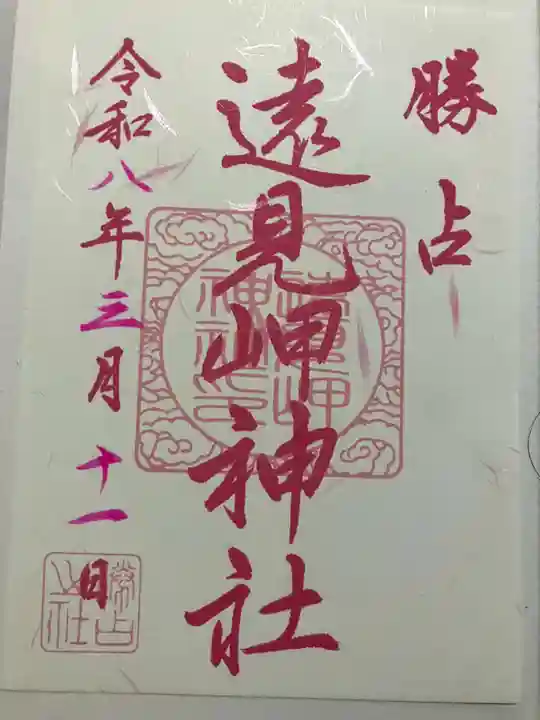 勝占
遠見岬神社
令和八年三月十一日